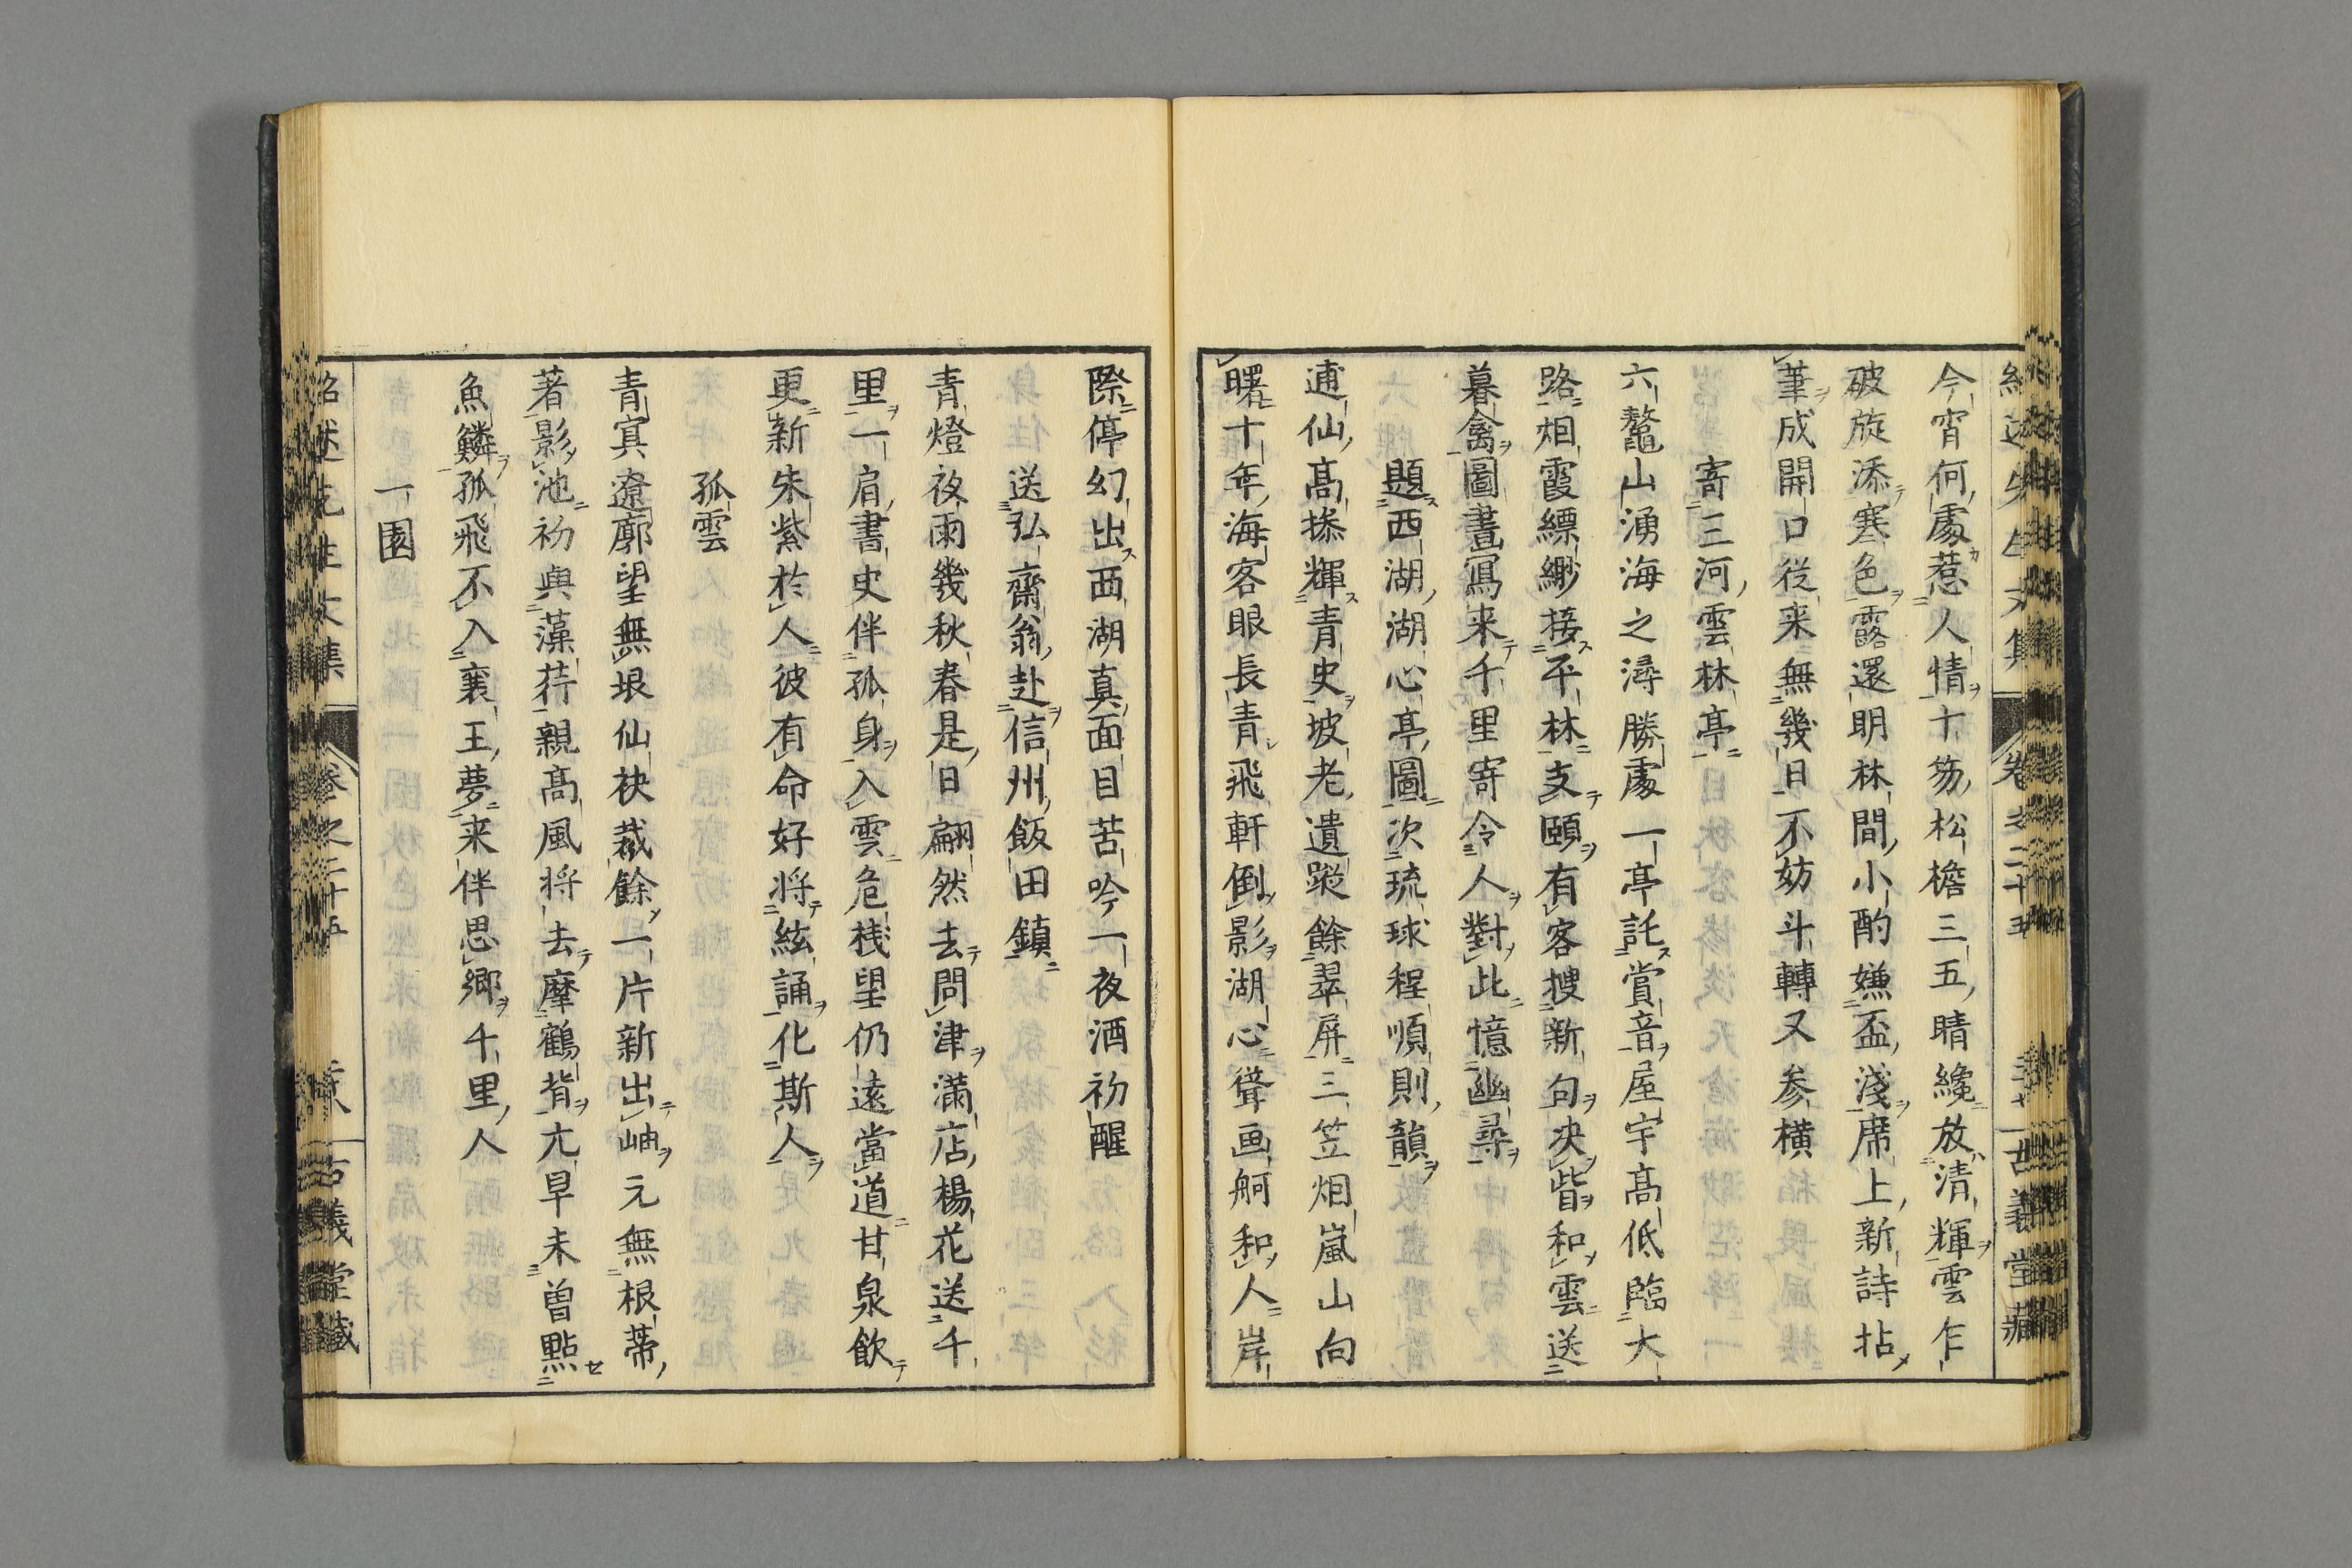 紹述先生文集 卷之二十五 古義堂藏
今宵何處惹人情十笏松檐三五晴纔放清輝雲乍
破旋添寒色露還明林間小酌嫌盃淺席上新詩拈
筆成開口從来無幾日不妨斗轉又参横
寄三河雲林亭
六鼇山湧海之潯勝處一亭託賞音屋宇髙低臨大
路烟霞縹緲接平林支頤有客搜新句决眥和雲送
暮禽圖畫冩来千里寄令人對此憶幽尋
題西湖湖心亭圖次琉球程順則韻
逋仙髙搽輝青史坡老遺蹤餘翠屏三笠烟嵐山向
曙十年海客眼長青飛軒倒影湖心聳画舸和人岸
際停幻出西湖真面目苦吟一夜酒初醒
送弘齋翁赴信州飯田鎮
青燈夜雨幾秋春是日翩然去問津滿店楊花送千
里一肩書史伴孤身入雲危棧望仍遠當道甘泉飲
更新朱紫於人彼有命好将絃誦化斯人
孤雲
青寘遼廓望無垠仙袂裁餘一片新出岫元無根蒂
著影池初與藻荇親髙風将去摩鶴背亢早未曽點
魚鱗孤飛不入襄王夢来伴思鄉千里人
一園
紹述先生文集 卷之二十五 古義堂藏